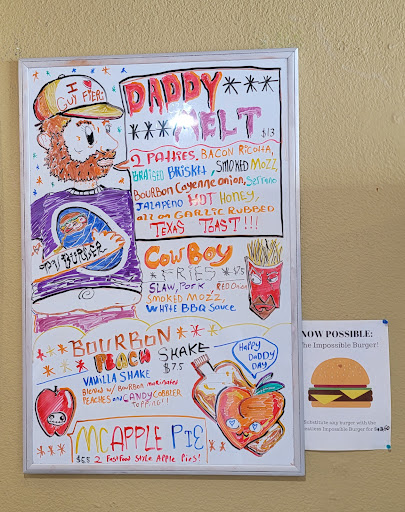 I ❤ GUY FIERI
DADDY
MELT
$13
2 PATTIES, BACON RICOTTA,
BRAISED BRISKET, SMOKED MOZZ,
BOURBON CAYENNE ONION, SERRANO
JALAPENO HOT HONEY,
ALL ON GARLIC RUBBED
TEXAS TOAST!!!
BURGER
COWBOY
FRIES
SLAW, PORK, RED ONION
SMOKED MOZZ,
WHITE BBQ SAUCE
BOURBON
PEACH SHAKE
$7.5
VANILLA SHAKE
BLEND W/ BOURBON MACERATED
PEACHES AND CANDY COBBLER
TOPPING!!
HAPPY
DADDY
DAY
MC APPLE PIE
2 FASTFOOD STYLE APPLE PIES!
NOW POSSIBLE:
The Impossible Burger!
Substitute any burger with the
Impossible Burger for